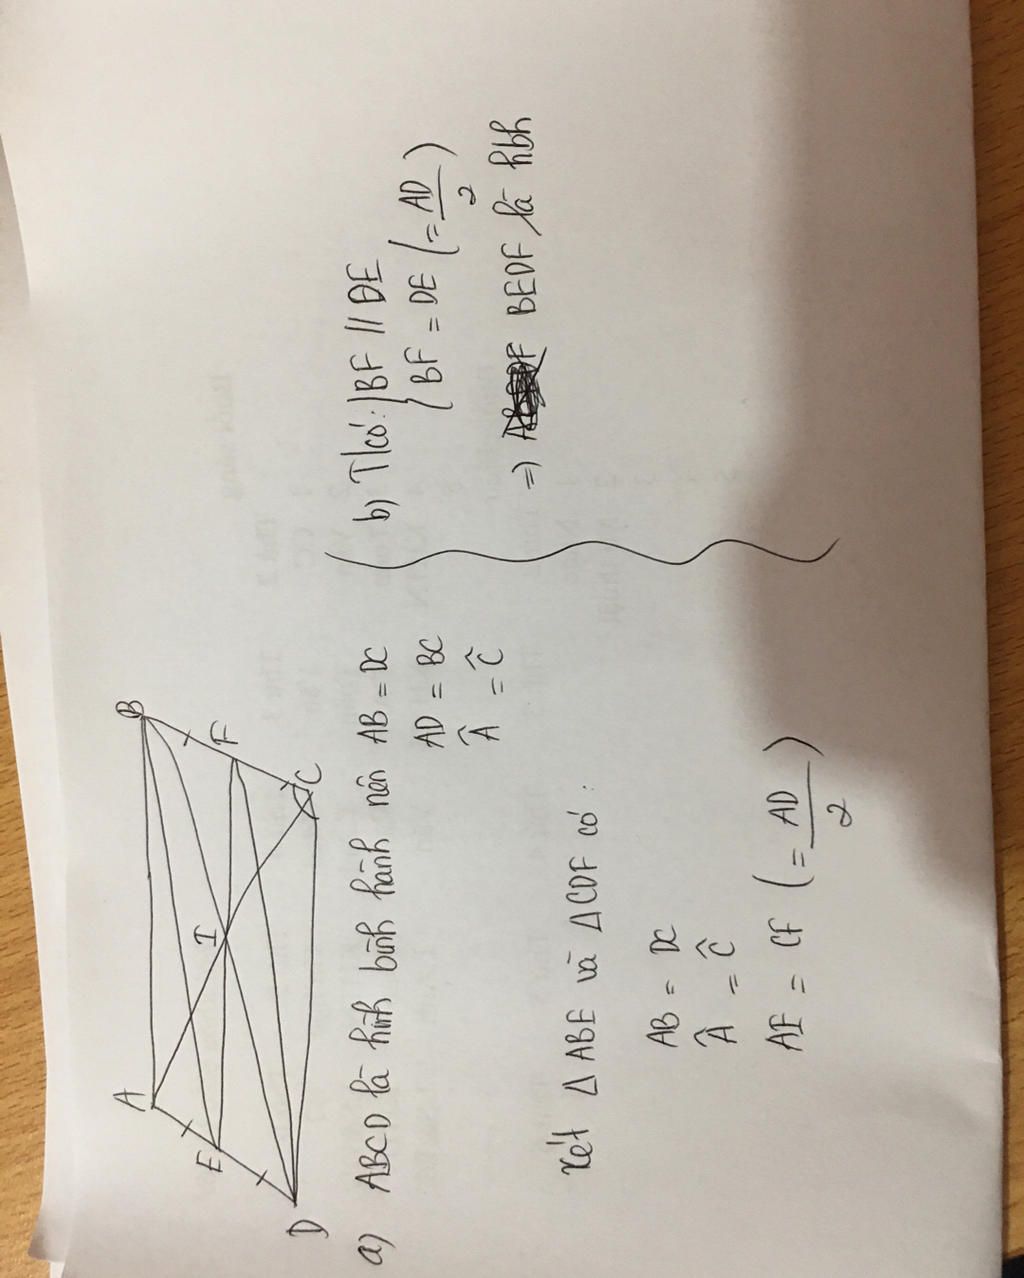 A
B
E
I
F
D
C
a) ABCD là hình bình hành nên AB = DC
AD = BC
Â = Ĉ
Xét Δ ABE và Δ CDF có :
AB = DC
Â = Ĉ
AE = CF (= AD/2)
b) T/có: { BF // DE
BF = DE (= AD/2)
=) BEDF là hbh